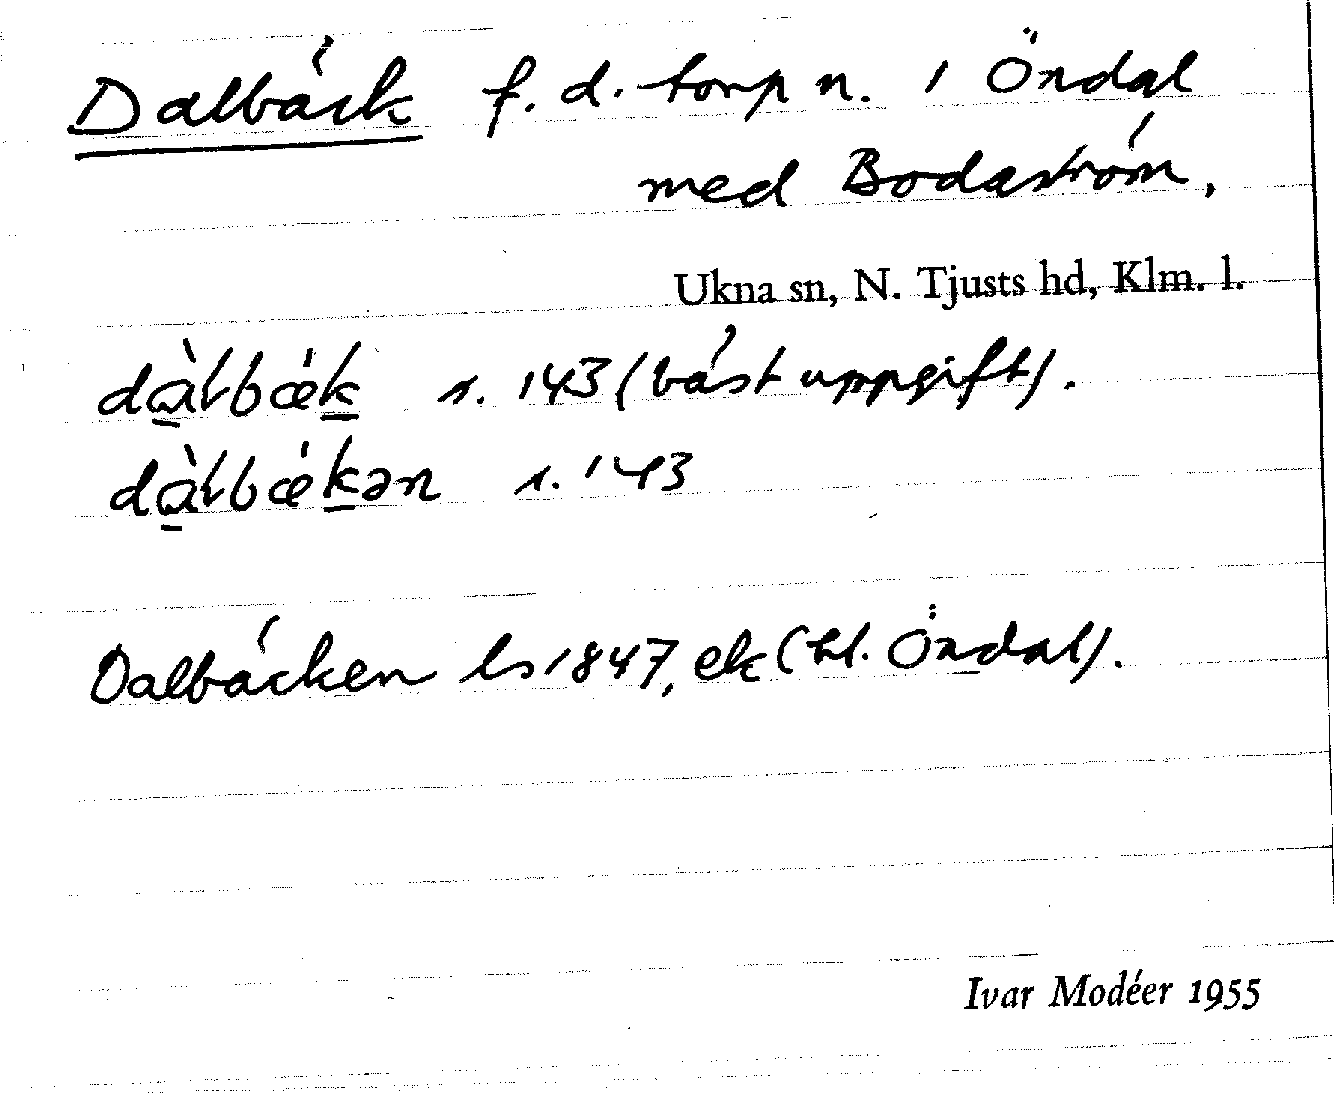 Dalbäck f.d. torp n. i Öndal
med Bodaström,
Ukna sn, N. Tjusts hd, Klm. l.
dàlbæ̀k s. 143 (bäst uppgift).
dàlbæ̀kən s. 143
Dalbäcken ls 1847, ek (hl. Öndal).
Ivar Modéer 1955